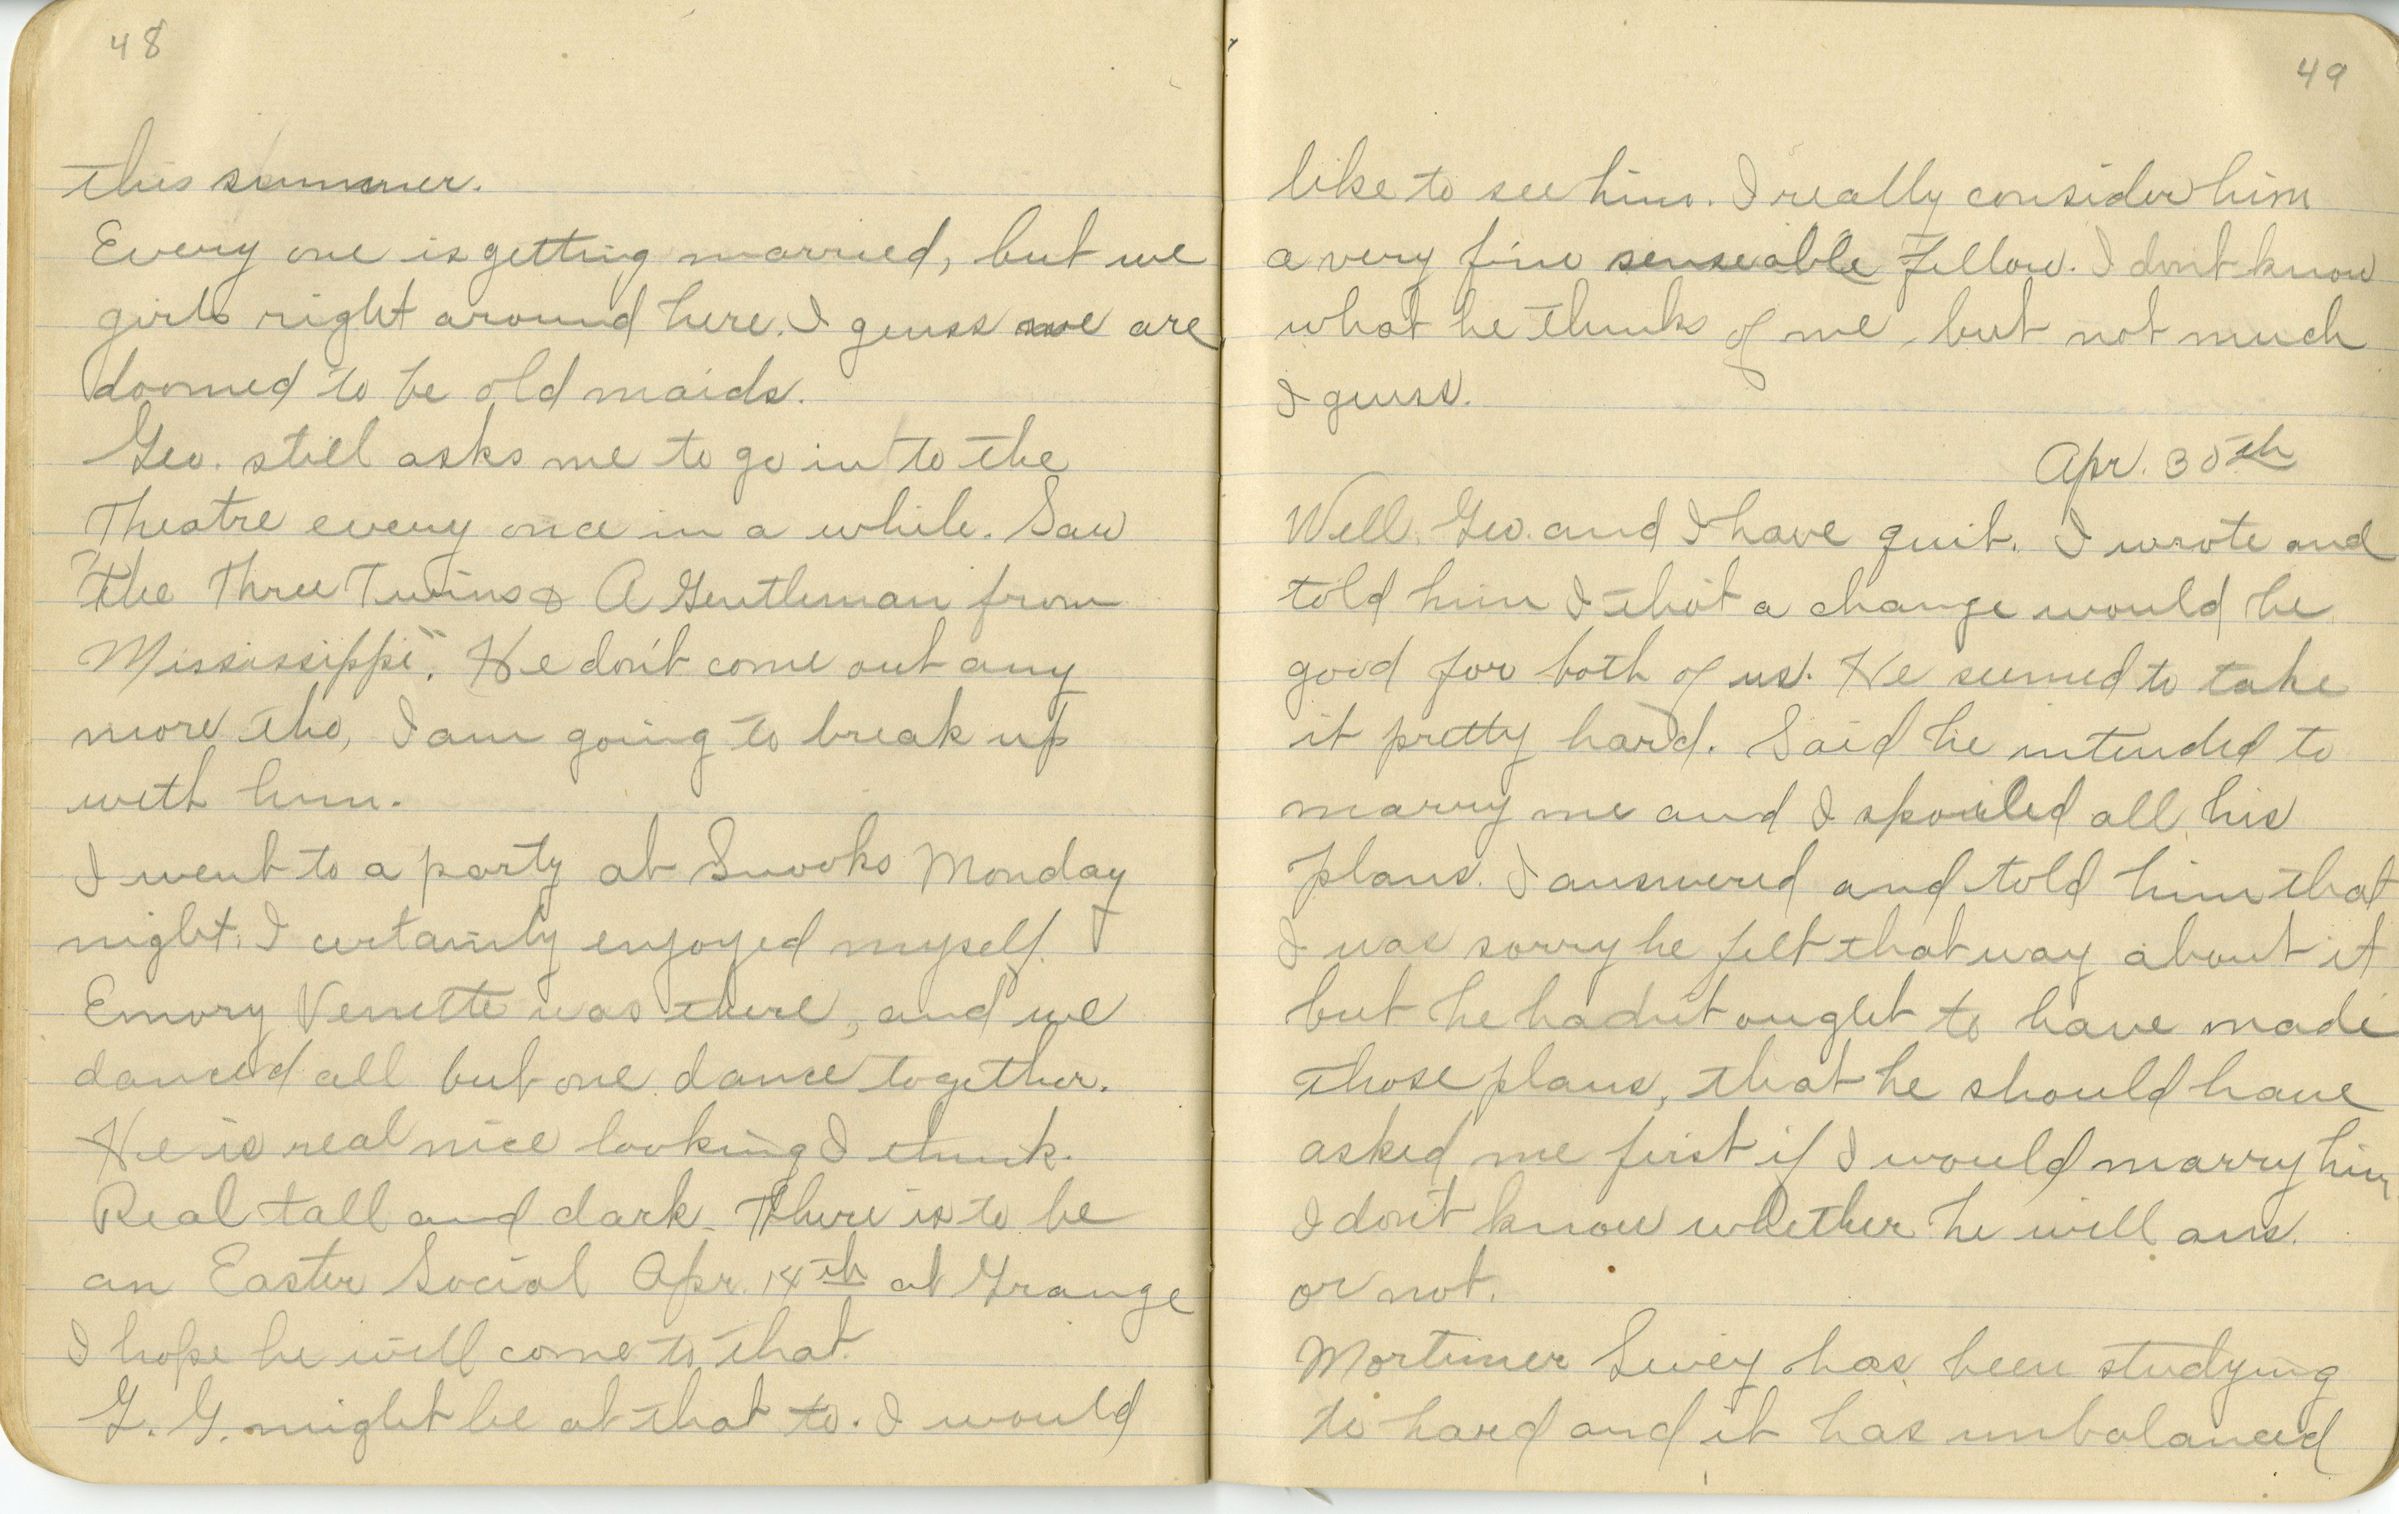 48
this summer.
Every one is getting married, but we
girls right around here. I guess we are
doomed to be old maids.
Geo. still asks me to go in to the
Theatre every once in a while. Saw
"The Three Twins & A Gentleman from
Mississippi". He don't come out any
more tho, I am going to break up
with him.
I went to a party at Snooks Monday
night. I certainly enjoyed myself.
Emory was there, and we
danced all but one dance together.
He is real nice looking I think.
Real tall and dark. There is to be
an Easter Social Apr. 14th at Grange
I hope he will come to that.
G. G. might be at that to. I would
49
like to see him. I really consider him
a very fine senseable fellow. I don't know
what he thinks of me, but not much
I guess.
Apr. 30th
Well, Geo. and I have quit. I wrote and
told him I thot a change would be
good for both of us. He seemed to take
it pretty hard. Said he intended to
marry me and I spoiled all his
plans. I answered and told him that
I was sorry he felt that way about it
but he hadn't ought to have made
those plans, that he should have
asked me first if I would marry him
I don't know whether he will ans.
or not.
Mortimer has been studying
to hard and it has unbalanced